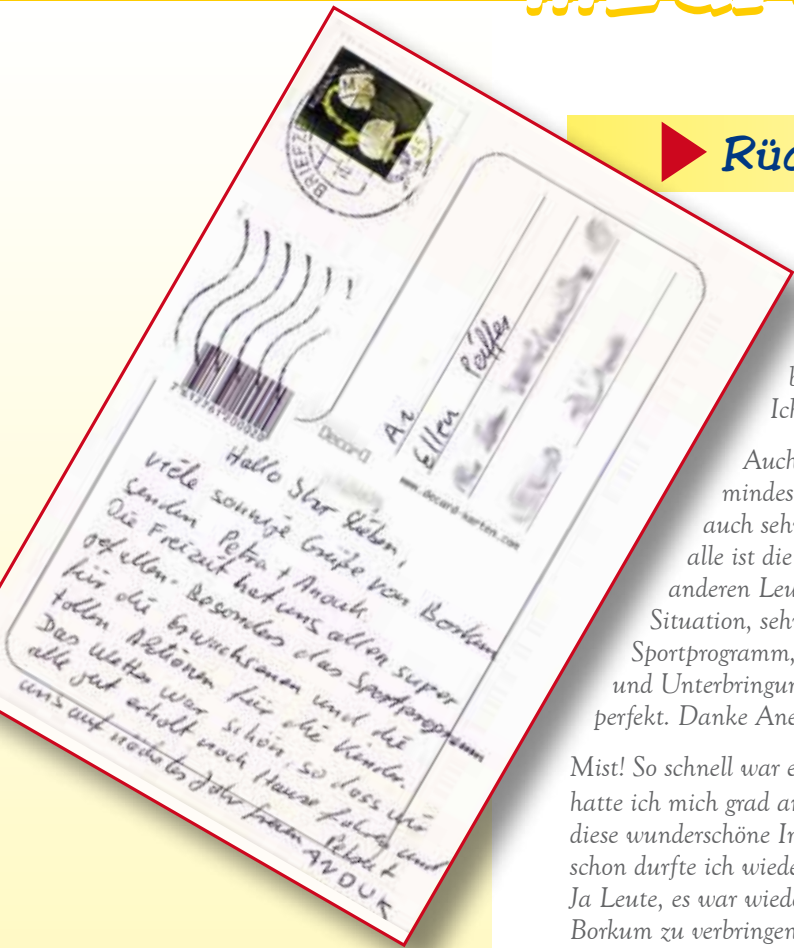 Rüc
BRIEFZ
7412761200020
Decard
www.decard-karten.com
An
Ellen
Hallo Ihr Lieben,
viele sonnige Grüße von Borkum
senden Petra + Anouk
Die Freizeit hat uns allen super
gefallen. Besonders das Sportprogramm
für die Erwachsenen und die
tollen Aktionen für die Kinder.
Das Wetter war schön, so dass wir
alle gut erholt nach Hause fahren und
uns auf nächstes Jahr freuen Petra +
ANOUK
b
Ich
Auch
mindes
auch sehr
alle ist die
anderen Leu
Situation, sehr
Sportprogramm,
und Unterbringun
perfekt. Danke Ane
Mist! So schnell war e
hatte ich mich grad an
diese wunderschöne In
schon durfte ich wiede
Ja Leute, es war wiede
Borkum zu verbringen